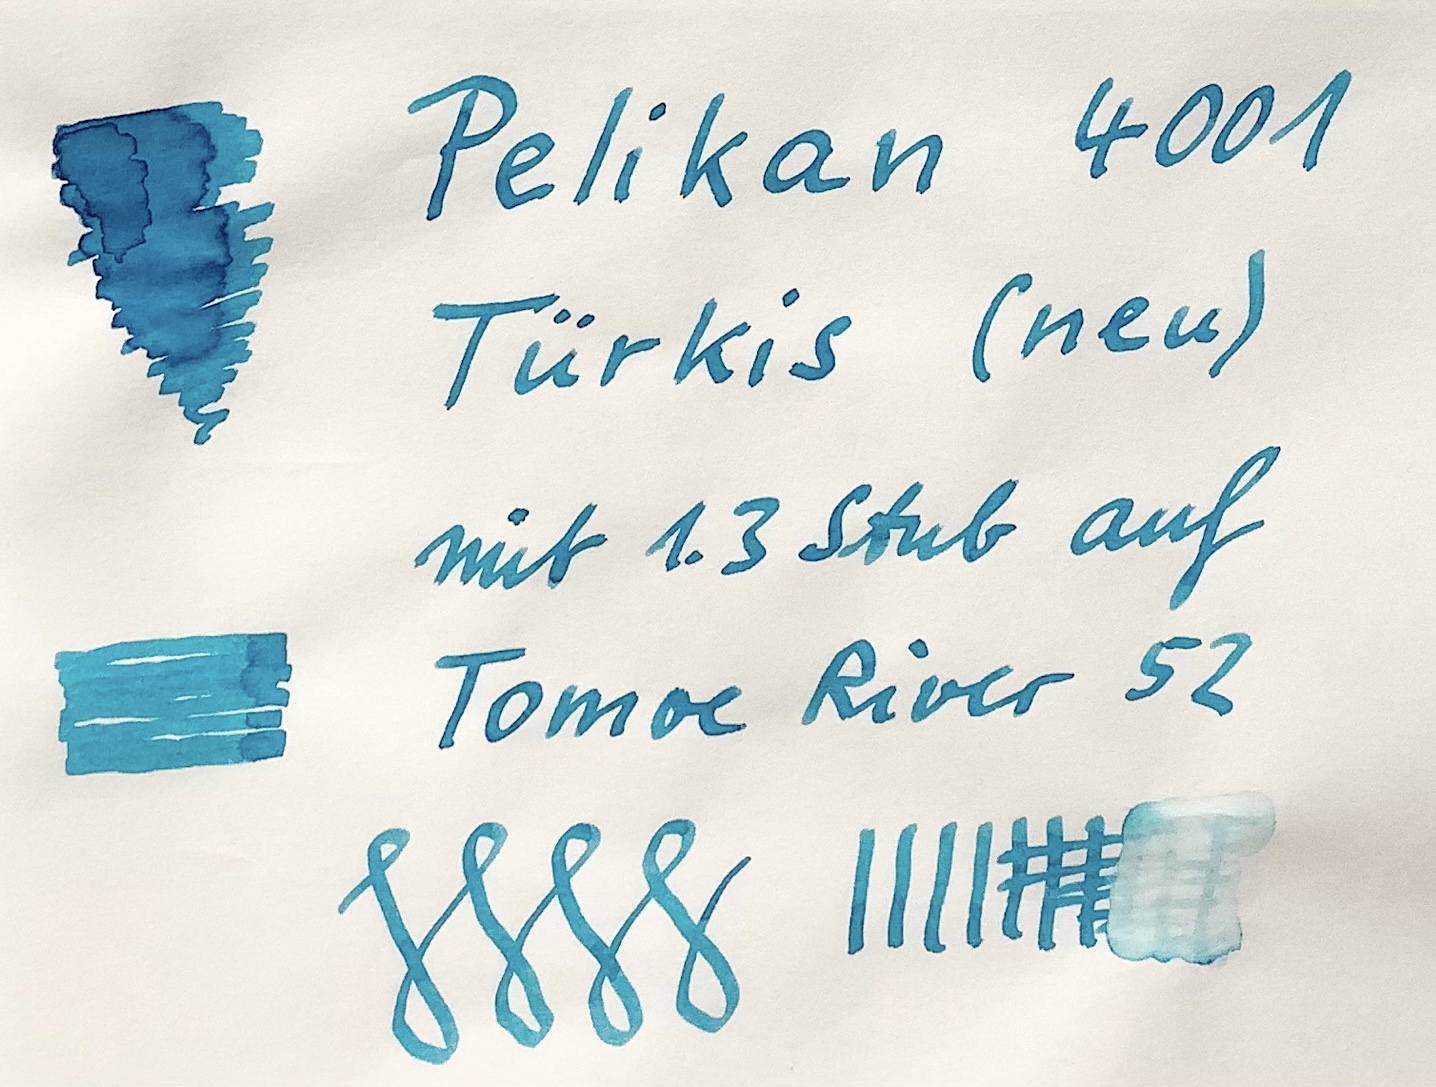 Pelikan 4001
Türkis (neu)
mit 1.3 Stub auf
Tomoe River 52